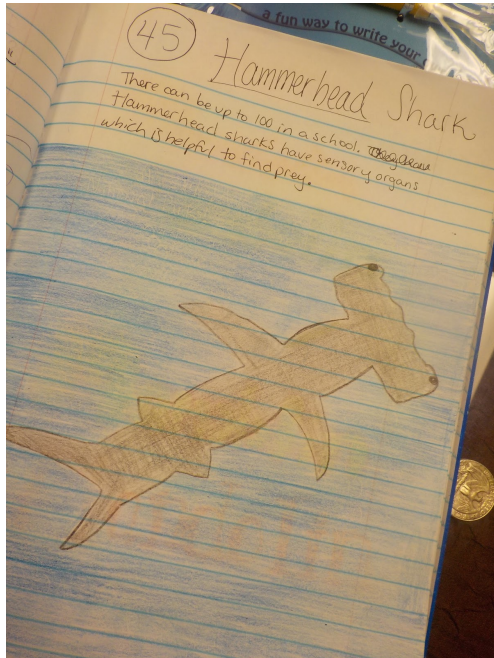 a fun way to write your
45
Hammerhead Shark
There can be up to 100 in a school.
Hammerhead sharks have sensory organs
which is helpful to find prey.